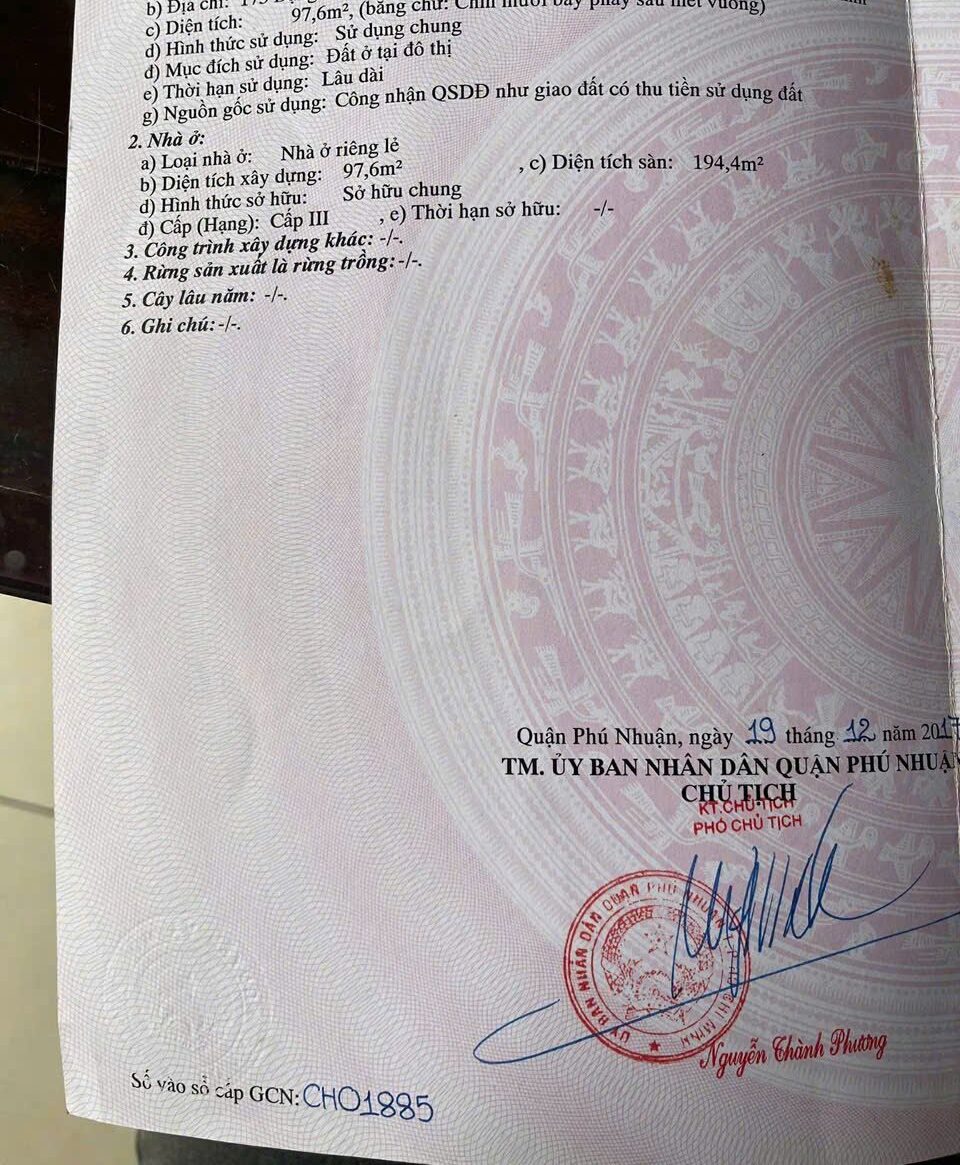 b) Địa chỉ: 175
c) Diện tích: 97,6m², (bằng chữ: Chín mươi bảy phẩy sáu mét vuông)
d) Hình thức sử dụng: Sử dụng chung
đ) Mục đích sử dụng: Đất ở tại đô thị
e) Thời hạn sử dụng: Lâu dài
g) Nguồn gốc sử dụng: Công nhận QSDĐ như giao đất có thu tiền sử dụng đất
2. Nhà ở:
a) Loại nhà ở: Nhà ở riêng lẻ
b) Diện tích xây dựng: 97,6m² , c) Diện tích sàn: 194,4m²
d) Hình thức sở hữu: Sở hữu chung
đ) Cấp (Hạng): Cấp III , e) Thời hạn sở hữu: -/-
3. Công trình xây dựng khác: -/-.
4. Rừng sản xuất là rừng trồng: -/-.
5. Cây lâu năm: -/-.
6. Ghi chú: -/-.
Quận Phú Nhuận, ngày 19 tháng 12 năm 2017
TM. ỦY BAN NHÂN DÂN QUẬN PHÚ NHUẬN
CHỦ TỊCH
KT.CHỦ TỊCH
PHÓ CHỦ TỊCH
ỦY BAN NHÂN DÂN QUẬN PHÚ NHUẬN
Nguyễn Thành Phương
Số vào sổ cấp GCN: CH01885